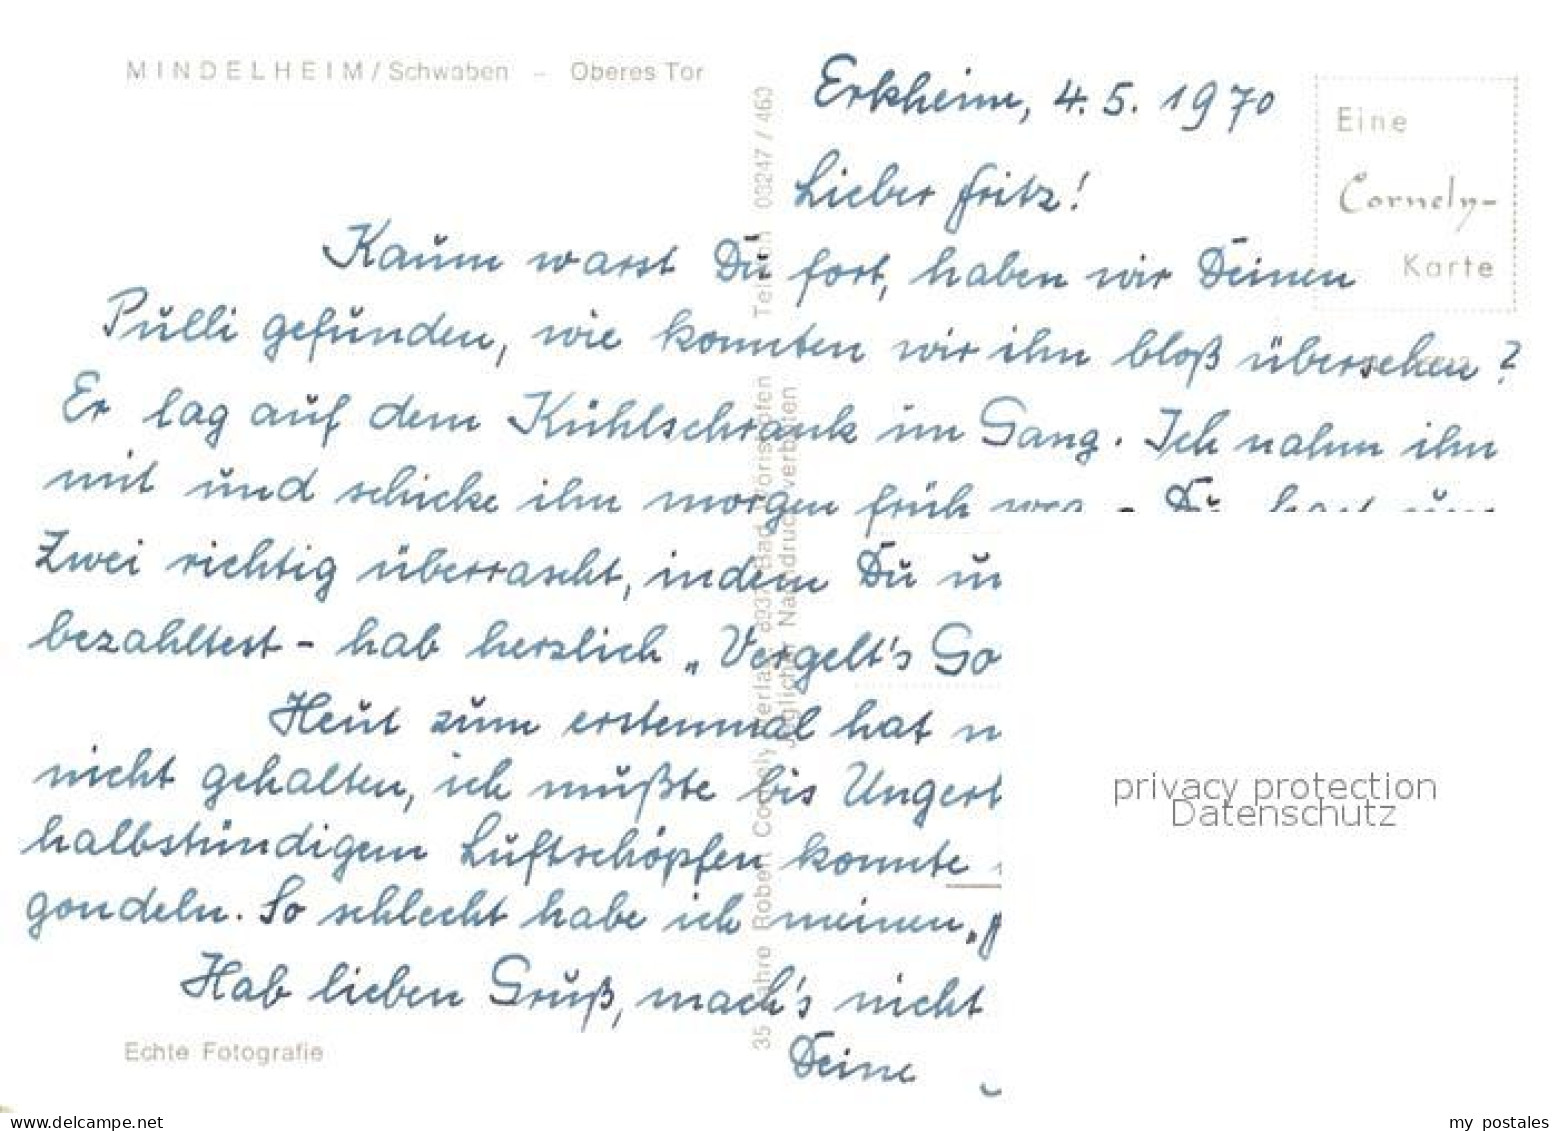 MINDELHEIM/Schwaben - Oberes Tor
Erkheim, 4.5.1970
Eine
Cornely-
Karte
Lieber Fritz!
Kaum warst Du fort, haben wir Deinen
Pulli gefunden, wie konnten wir ihn bloß übersehen?
Er lag auf dem Kühlschrank im Gang. Ich nahm ihn
mit und schicke ihn morgen früh weg - Du hast uns
Zwei richtig überrascht, indem Du un
bezahltest - hab herzlich „Vergelt's Go
Heut zum erstenmal hat
nicht gehalten, ich mußte bis Ungert
halbstündigem Luftschöpfen konnte
gondeln. So schlecht habe ich meinen
Hab lieben Gruß, mach's nicht
Deine
Echte Fotografie
35 Jahre Robert Cornely Verlag 8937 Bad Wörishofen Telefon 08247 / 460
Jeglicher Nachdruck verboten
privacy protection
Datenschutz
www.delcampe.net
my_postales